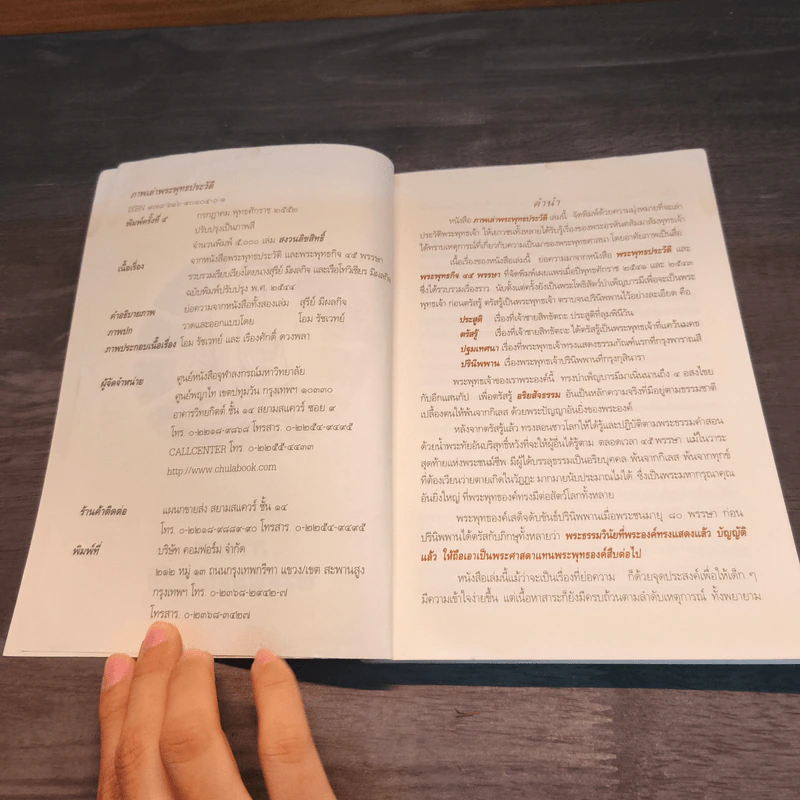 ภาพเล่าพระพุทธประวัติ
ISBN ๙๗๘-๖๑๖-๙๐๑๐๔-๐-๑
พิมพ์ครั้งที่ ๔ กรกฎาคม พุทธศักราช ๒๕๕๒
ปรับปรุงเป็นภาพสี
จำนวนพิมพ์ ๕,๐๐๐ เล่ม สงวนลิขสิทธิ์
เนื้อเรื่อง จากหนังสือพระพุทธประวัติ และพระพุทธกิจ ๔๕ พรรษา
รวบรวมเรียบเรียงโดยนางสุรีย์ มีผลกิจ และเรือโทวิเชียร มีผลกิจ
ฉบับพิมพ์ปรับปรุง พ.ศ. ๒๕๔๔
คำอธิบายภาพ ย่อความจากหนังสือทั้งสองเล่ม สุรีย์ มีผลกิจ
ภาพปก วาดและออกแบบโดย โอม รัชเวทย์
ภาพประกอบเนื้อเรื่อง โอม รัชเวทย์ และ เรืองศักดิ์ ดวงพลา
ผู้จัดจำหน่าย ศูนย์หนังสือจุฬาลงกรณ์มหาวิทยาลัย
ศูนย์พญาไท เขตปทุมวัน กรุงเทพฯ ๑๐๓๓๐
อาคารวิทยกิตติ์ ชั้น ๑๔ สยามสแควร์ ซอย ๙
โทร. ๐-๒๒๑๘-๙๘๖๘ โทรสาร. ๐-๒๒๕๔-๙๔๙๕
CALLCENTER โทร. ๐-๒๒๕๕-๔๔๓๓
http://www.chulabook.com
ร้านค้าติดต่อ แผนกขายส่ง สยามสแควร์ ชั้น ๑๔
โทร. ๐-๒๒๑๘-๙๘๘๙-๙๐ โทรสาร. ๐-๒๒๕๔-๙๔๙๕
พิมพ์ที่ บริษัท คอมฟอร์ม จำกัด
๒๑๒ หมู่ ๑๓ ถนนกรุงเทพกรีฑา แขวง/เขต สะพานสูง
กรุงเทพฯ โทร. ๐-๒๓๖๘-๒๙๔๒-๗
โทรสาร. ๐-๒๓๖๘-๓๔๒๗
คำนำ
หนังสือ ภาพเล่าพระพุทธประวัติ เล่มนี้ จัดพิมพ์ด้วยความมุ่งหมายที่จะเล่า
ประวัติพระพุทธเจ้า ให้เยาวชนทั้งหลายได้รับรู้เรื่องของพระอรหันตสัมมาสัมพุทธเจ้า
ได้ทราบเหตุการณ์ที่เกี่ยวกับความเป็นมาของพระพุทธศาสนา โดยอาศัยภาพเป็นสื่อ
เนื้อเรื่องของหนังสือเล่มนี้ ย่อความมาจากหนังสือ พระพุทธประวัติ และ
พระพุทธกิจ ๔๕ พรรษา ที่จัดพิมพ์เผยแพร่เมื่อปีพุทธศักราช ๒๕๔๑ และ ๒๕๔๓
ซึ่งได้รวบรวมเรื่องราว นับตั้งแต่ครั้งยังเป็นพระโพธิสัตว์บำเพ็ญบารมีเพื่อจะเป็นพระ
พุทธเจ้า ก่อนตรัสรู้ ตรัสรู้เป็นพระพุทธเจ้า ตราบจนปรินิพพานไว้อย่างละเอียด คือ
ประสูติ เรื่องที่เจ้าชายสิทธัตถะ ประสูติที่ลุมพินีวัน
ตรัสรู้ เรื่องที่เจ้าชายสิทธัตถะ ได้ตรัสรู้เป็นพระพุทธเจ้าที่แคว้นมคธ
ปฐมเทศนา เรื่องที่พระพุทธเจ้าทรงแสดงธรรมกัณฑ์แรกที่กรุงพาราณสี
ปรินิพพาน เรื่องพระพุทธเจ้าปรินิพพานที่กรุงกุสินารา
พระพุทธเจ้าของเราพระองค์นี้ ทรงบำเพ็ญบารมีมาเนิ่นนานถึง ๔ อสงไขย
กับอีกแสนกัป เพื่อตรัสรู้ อริยสัจธรรม อันเป็นหลักความจริงที่มีอยู่ตามธรรมชาติ
เปลื้องตนให้พ้นจากกิเลส ด้วยพระปัญญาอันยิ่งของพระองค์
หลังจากตรัสรู้แล้ว ทรงสอนชาวโลกให้ได้รู้และปฏิบัติตามพระธรรมคำสอน
ด้วยน้ำพระทัยอันบริสุทธิ์หวังที่จะให้ผู้อื่นได้รู้ตาม ตลอดเวลา ๔๕ พรรษา แม้ในวาระ
สุดท้ายแห่งพระชนม์ชีพ มีผู้ได้บรรลุธรรมเป็นอริยบุคคล พ้นจากกิเลส พ้นจากทุกข์
ที่ต้องเวียนว่ายตายเกิดในวัฏฏะ มากมายนับประมาณไม่ได้ ซึ่งเป็นพระมหากรุณาคุณ
อันยิ่งใหญ่ ที่พระพุทธองค์ทรงมีต่อสัตว์โลกทั้งหลาย
พระพุทธองค์เสด็จดับขันธ์ปรินิพพานเมื่อพระชนมายุ ๘๐ พรรษา ก่อน
ปรินิพพานได้ตรัสกับภิกษุทั้งหลายว่า พระธรรมวินัยที่พระองค์ทรงแสดงแล้ว บัญญัติ
แล้ว ให้ถือเอาเป็นพระศาสดาแทนพระพุทธองค์สืบต่อไป
หนังสือเล่มนี้แม้ว่าจะเป็นเรื่องที่ย่อความ ก็ด้วยจุดประสงค์เพื่อให้เด็ก ๆ
มีความเข้าใจง่ายขึ้น แต่เนื้อหาสาระก็ยังมีครบถ้วนตามลำดับเหตุการณ์ ทั้งพยายาม